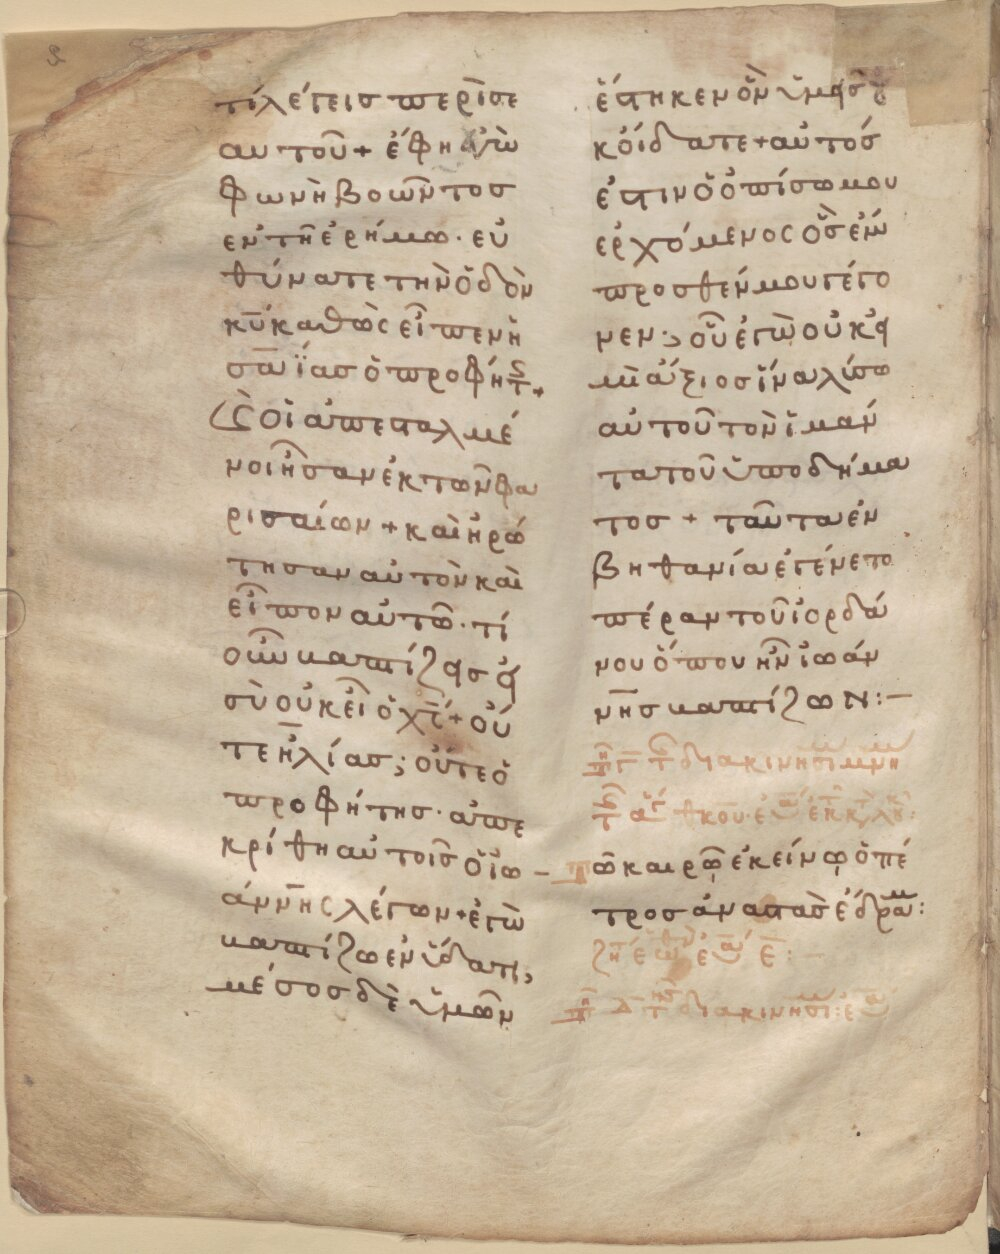 τί λέγεις περὶ σε
αυτοῦ + ἔφη ἐγὼ
φωνὴ βοῶντος
ἐν τῆ ἐρήμω · εὐ
θύνατε τὴν ὁδὸν
κ̅υ̅ καθὼς εἶπεν ἡ
σαΐας ὁ προφήτης +
καὶ οἱ ἀπεσταλμέ
νοι ἦσαν ἐκ τῶν φα
ρισαίων + καὶ ἠρώ
τησαν αὐτὸν καὶ
εἶπον αὐτῶ · τί
οὖν βαπτίζεις εἰ
σὺ οὐκ εἶ ὁ χ̅ς̅ + οὔ
τε ἠλίας ; οὔτε ὁ
προφήτης · ἀπε
κρίθη αὐτοῖς ὁ ἰω
άννης λέγων + ἐγὼ
βαπτίζω ἐν ὕδατι,
μέσος δὲ ὑμῶν
ἕστηκεν ὃν ὑμεῖς οὐ
κ οἴδατε + αὐτός
ἐστιν ὁ ὀπίσω μου
ἐρχόμενος ὃς ἔμ
προσθέν μου γέγο
νεν · οὗ ἐγὼ οὐκ εἰ
μὶ ἄξιος ἵνα λύσω
αὐτοῦ τὸν ἱμάν
τα τοῦ ὑποδήμα
τος + ταῦτα ἐν
βηθανία ἐγένετο
πέραν τοῦ ἰορδά
νου ὅπου ἦν ἰωάν
νης βαπτίζων :–
τῆ γ τῆς διακινησίμου
τῶ καιρῶ ἐκείνω ὁ πέ
τρος ἀναστὰς ἔδραμ :
τῆ δ τῆς διακινησί :